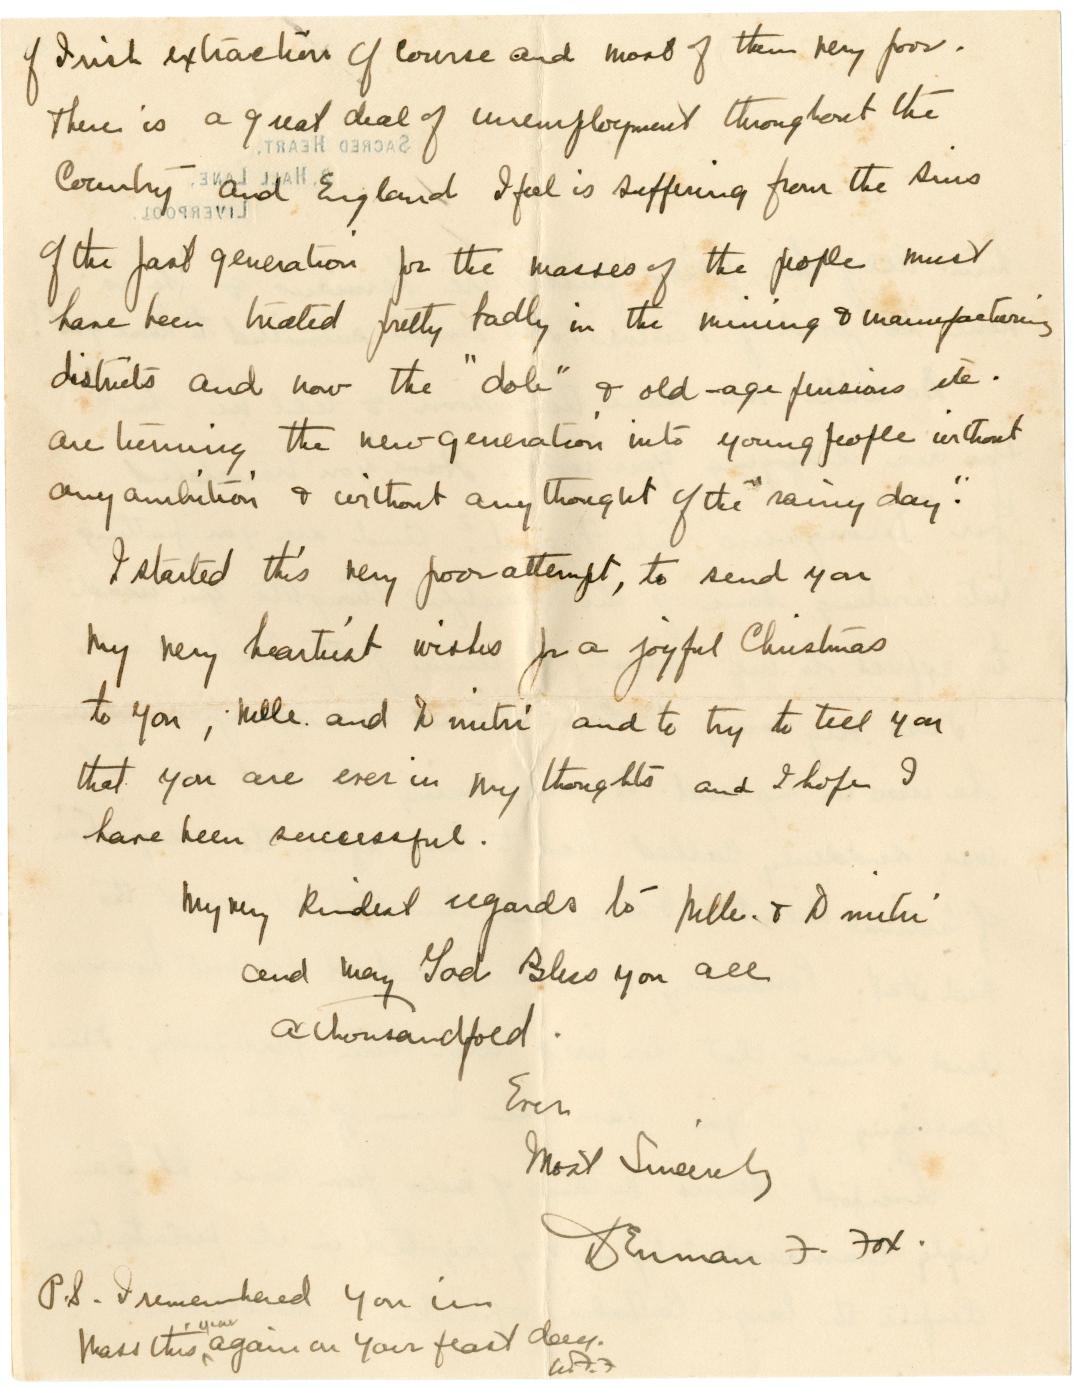 of Irish extraction of course and most of them very poor.
There is a great deal of unemployment throughout the
SACRED HEART,
HALL LANE,
LIVERPOOL.
Country and England I feel is suffering from the sins
of the past generation for the masses of the people must
have been treated pretty badly in the mining & manufacturing
districts and now the "dole" & old-age pensions etc.
are turning the new generation into young people without
any ambition & without any thought of the "rainy day".
I started this very poor attempt, to send you
my very heartiest wishes for a joyful Christmas
to you, Melle. and Dmitri and to try to tell you
that you are ever in my thoughts and I hope I
have been successful.
My very kindest regards to Melle. & Dmitri
and may God Bless you all
a thousandfold.
Ever
Most Sincerely
Denman F. Fox.
P.S. I remembered you in
Mass this year again on your feast day.